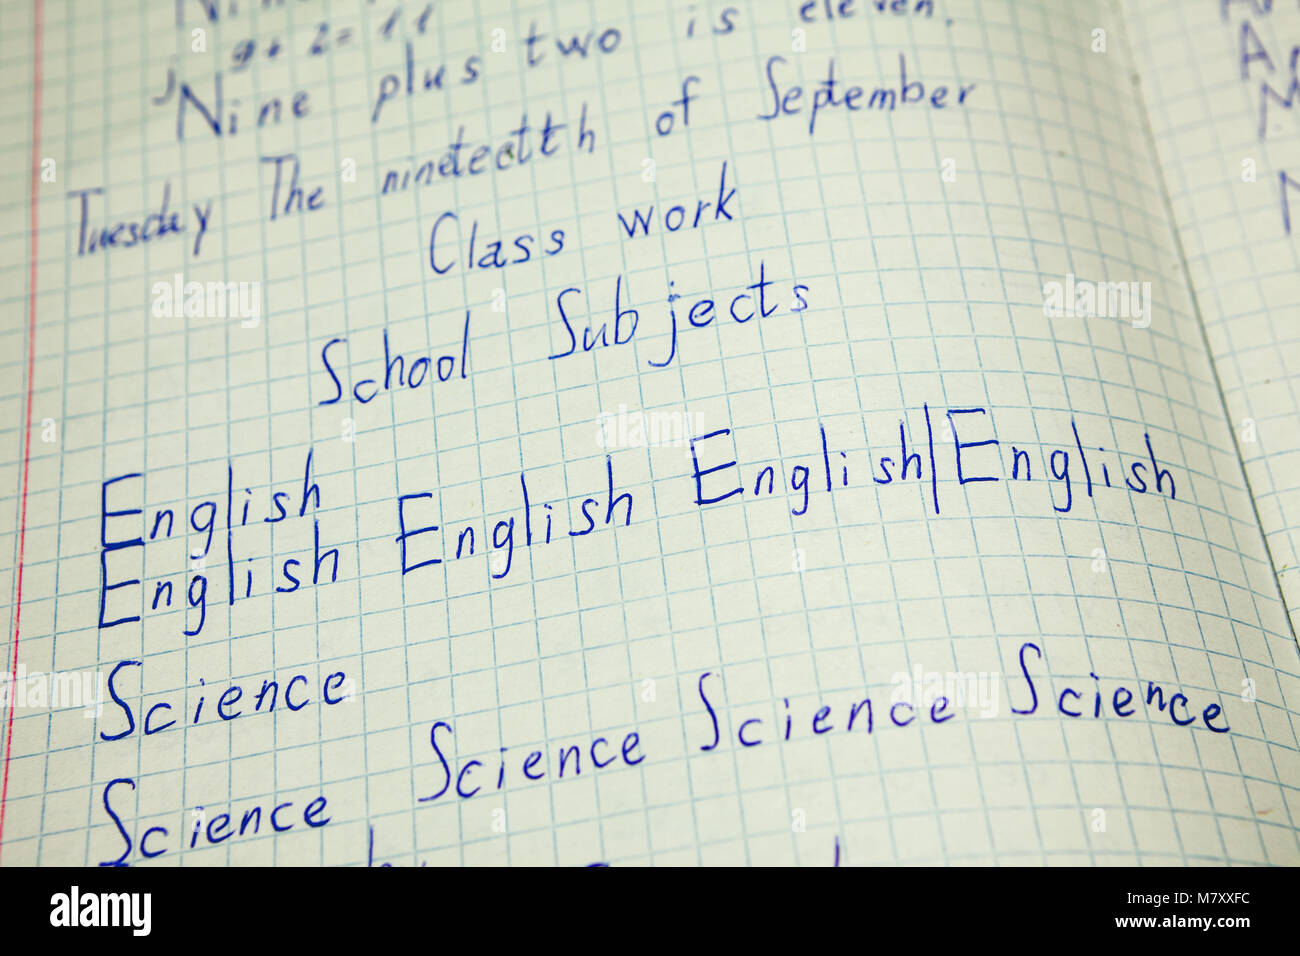 9 + 2 = 11
Nine plus two is eleven.
Tuesday The ninetectth of September
Class work
School Subjects
English
English English English|English
Science
Science Science Science Science
alamy
Image ID: M7XXFC
www.alamy.com